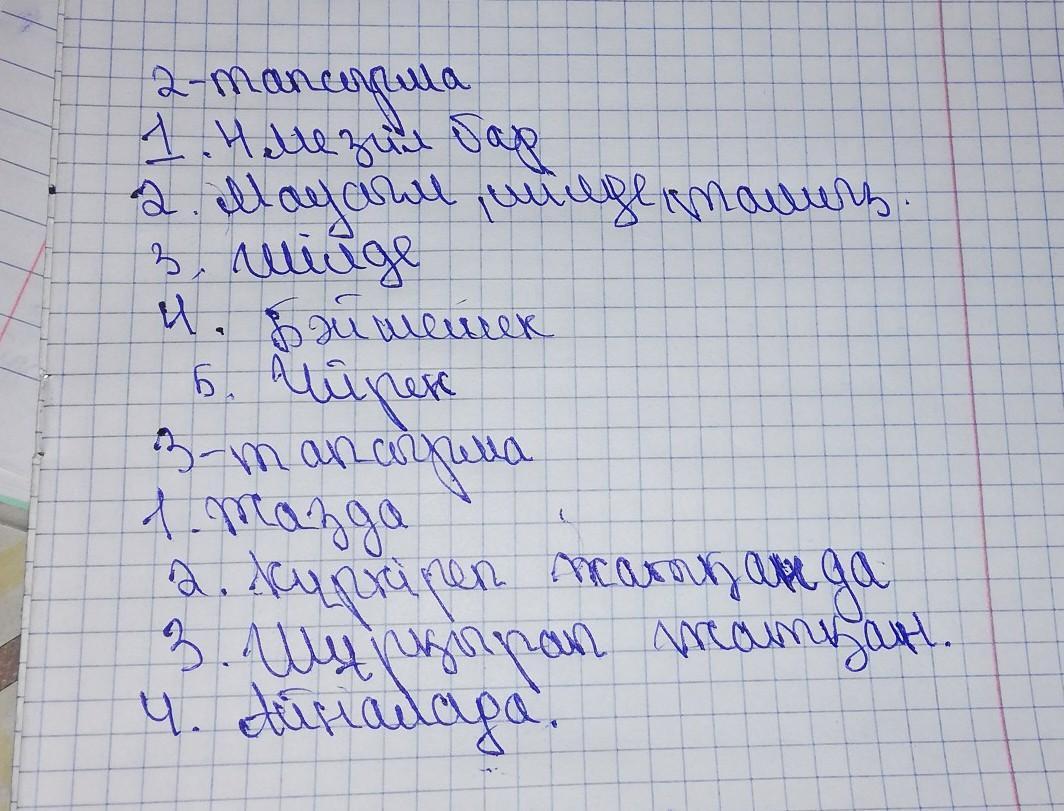 2-тапсырма
1. 4 мезгіл бар
2. Маусым, шілде, тамыз.
3. Шілде
4. Бәйшешек
5. Үйрек
3-тапсырма
1. Жазда
2. Күркіреп жатқанда
3. жатқан.
4. Айналада.